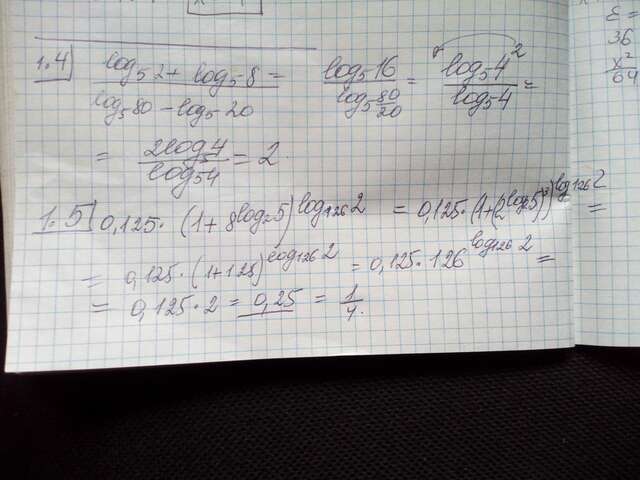 1.4) (log₅2 + log₅8)/(log₅80 − log₅20) = log₅16/log₅(80/20) = log₅4²/log₅4 =
= 2log₅4/log₅4 = 2.
1.5) 0,125·(1+8^(log₂5))^(log₁₂₆2) = 0,125·(1+(2^(log₂5))³)^(log₁₂₆2) =
= 0,125·(1+125)^(log₁₂₆2) = 0,125·126^(log₁₂₆2) =
= 0,125·2 = 0,25 = 1/4.
ε =
36
x²/64